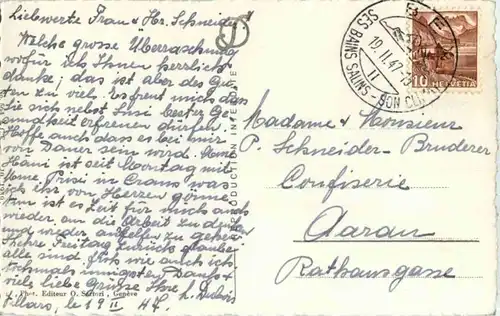 Liebwerte Frau & Hr. Schneider!
Welche grosse Überraschung
wofür ich Ihnen herzlich
danke; das ist aber des Gu-
ten zu viel. Es freut mich dass
Sie sich nebst Susi bester Ge-
sundheit erfreuen dürfen.
Hoffe auch dass es bei mir
von Dauer sein wird.
ist seit Montag mit
in Crans was
ich ihr von Herzen gönne.
Nun ist es Zeit für mich auch
wieder an die Arbeit zu denken
und wieder zu gehen.
Kehre Freitag zurück
alle sind. Ich wie auch ich
nochmals innigsten Dank &
viele liebe Grüsse Ihre L. Dubois
Villars, le 19 II 47.
Phot. Editeur O. Sartori, Genève
REPRODUCTION INTERDITE
SES BAINS SALINS - SON CLIMAT
19.II.47
II
10
HELVETIA
Madame & Monsieur
P. Schneider-Bruderer
Confiserie
Aarau
Rathausgasse